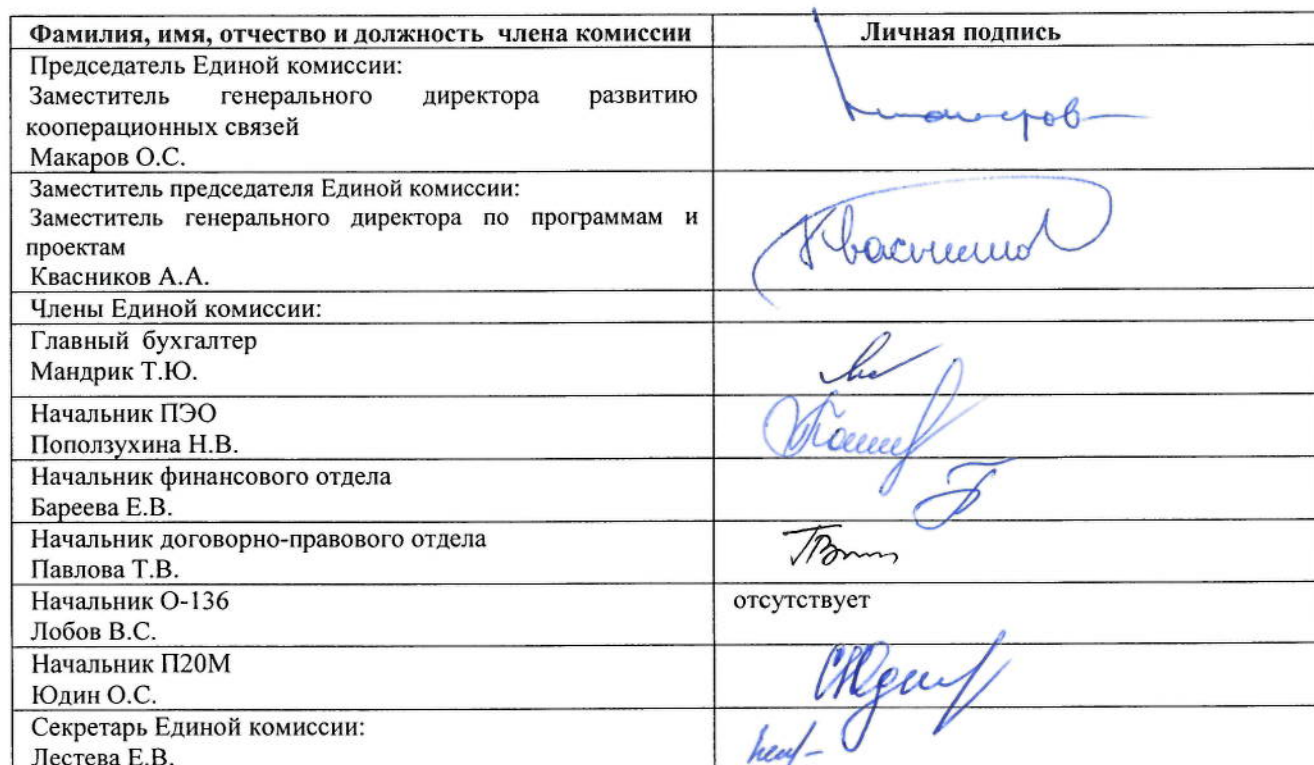 Фамилия, имя, отчество и должность члена комиссии
Личная подпись
Председатель Единой комиссии:
Заместитель генерального директора развитию
кооперационных связей
Макаров О.С.
Заместитель председателя Единой комиссии:
Заместитель генерального директора по программам и
проектам
Квасников А.А.
Члены Единой комиссии:
Главный бухгалтер
Мандрик Т.Ю.
Начальник ПЭО
Поползухина Н.В.
Начальник финансового отдела
Бареева Е.В.
Начальник договорно-правового отдела
Павлова Т.В.
Начальник О-136
Лобов В.С.
отсутствует
Начальник П20М
Юдин О.С.
Секретарь Единой комиссии:
Лестева Е.В.